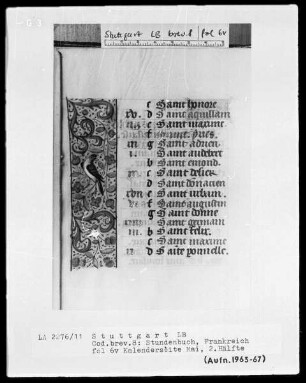 Stuttgart LB brev. 8 fol 6v
c Saint honore
xv. d Saint aquillain
e Saint maxime
f
iii g Saint adrien
xii A Saint audebert
b Saint emond.
c Saint desier
d Saint donacien
xvii e Saint urbain.
vi f Saint augustin
g Saint donne
A Saint germain
b Saint felix.
c Saint maxime
d Sainte ponnelle.
LA 2076/11 Stuttgart LB
Cod.brev.8: Stundenbuch, Frankreich
fol 6v Kalenderseite Mai, 2.Hälfte
(Aufn.1963-67)